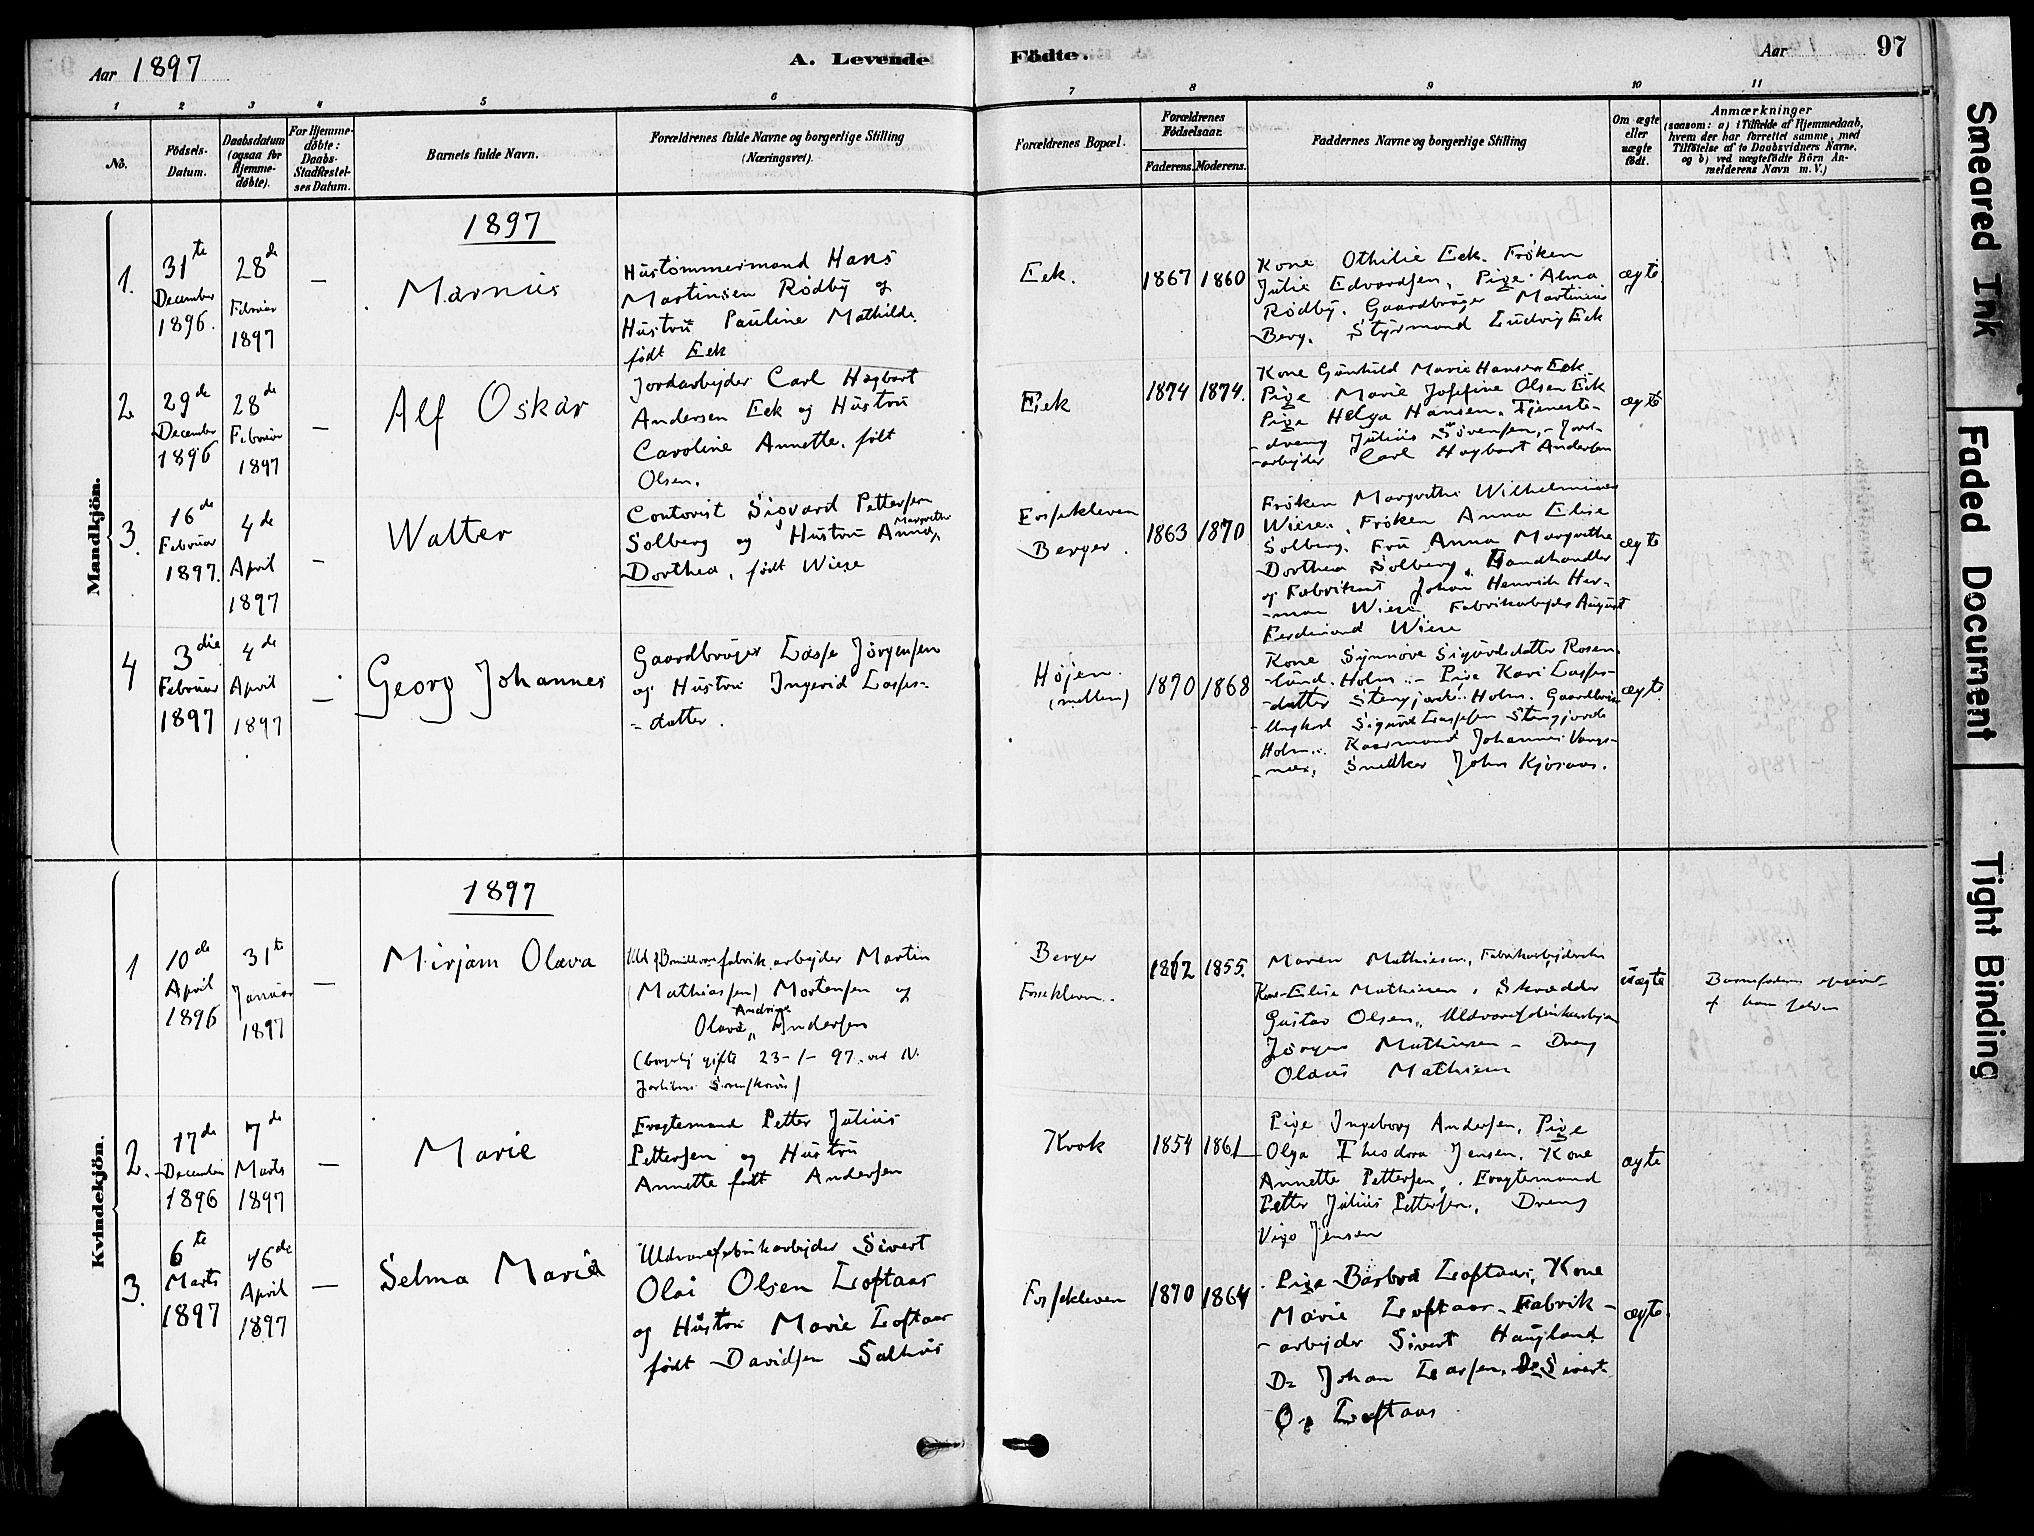 Aar 1897
A. Levende Födte.
Aar 97
1 2 3 4 5 6 7 8 9 10 11
No.
Födsels-
Datum.
Daabsdatum
(ogsaa for
Hjemme-
døbte).
For Hjemme-
døbte:
Daabs-
Stadfæstel-
ses Datum.
Barnets fulde Navn.
Forældrenes fulde Navne og borgerlige Stilling
(Næringsvei).
Forældrenes Bopæl.
Forældrenes
Födselsaar.
Faderens. Moderens.
Faddernes Navne og borgerlige Stilling
Om ægte
eller
uægte
født.
Anmærkninger
(saasom: a) i Tilfælde af Hjemmedaab,
hvem der har forrettet samme, med
Tilføielse af to Daabsvidners Navne,
og b) ved uægtefødte Börn An-
melderens Navn m. V.)
Mandkjön.
1897
1.
31te
December
1896.
28de
Februar
1897
—
Marnius
Hustømmermand Hans
Martinsen Rødby og
Hustru Pauline Mathilde
født Eek
Eek.
1867 1860
Kone Othilie Eek. Frøken
Julie Edvardsen, Pige Alma
Rødby. Gaardbruger Martinius
Berg. Styrmand Ludvig Eek
ægte
2
29de
December
1896
28de
Februar
1897
—
Alf Oskar
Jordarbejder Carl Hagbart
Andersen Eek og Hustru
Caroline Annette. født
Olsen.
Eek
1874 1874.
Kone Gunhild Marie Hansen Eek
Pige Marie Josefine Olsen Eek
Pige Helga Hansen. Tjeneste-
-dreng Julius Sørensen, - Jord-
-arbejder Carl Hagbart Andersen
ægte
3.
16de
Februar
1897.
4de
April
1897
—
Walter
Contorist Sigvard Pettersen
Solberg og Hustru Anna Margrethe
Dorthea, født Wiese
Fossekleven
Berger.
1863 1870
Frøken Margrethe Wilhelmine
Wiese, Frøken Anna Elise
Solberg. Fru Anna Margrethe
Dorthea Solberg, Handhandler
og Fabrikant Johan Henrich Her-
-man Wiese, Fabrikarbejder August
Ferdinand Wiese
ægte
4
3die
Februar
1897
4de
April
1897
—
Georg Johannes
Gaardbruger Lasse Jørgensen
og Hustru Ingerid Lasses-
-datter.
Højen
(mellem)
1870 1868
Kone Synnøve Sigurdsdatter Rosen-
-lund. Holm. - Pige Kari Lasses-
-datter Stengjorde. Holm. Gaardbru-
Ungkarl Sigurd Lassesen Stengjorde
Holm. Kaarmand Johannes Vangs-
-nes, Snedker John Kjøsaas.
ægte
Kvindekjön.
1897
1
10de
April
1896
31te
Januar
1897
—
Mirjam Olava
Uld og Bomuldsvarefabrik arbejder Martin
(Mathiassen) Mortensen og
Olava Andrine Andersen
(borgerlig gifte 23-1-97. ved N.
Berger
Fossekleven.
1862 1855.
Maren Mathiesen, Fabrikarbejderske
Kone Elise Mathiesen, Skrædder
Gustav Olsen, Uldvarefabrikarbejder
Jørgen Mathiesen - Dreng
Olaus Mathiesen
uægte
Barnefaderen opgivet
af ham selv
2.
17de
December
1896
7de
Marts
1897
—
Marie
Fragtemand Petter Julius
Pettersen og Hustru
Annette født Andersen
Krok
1854 1861
Pige Ingeborg Andersen, Pige
Olga Theodora Jensen, Kone
Annette Pettersen, Fragtemand
Petter Julius Pettersen, Dreng
Vigo Jensen
ægte
3.
6te
Marts
1897
16de
April
1897
—
Selma Marie
Uldvarefabrikarbejder Sivert
Olai Olsen Loftaas
og Hustru Marie Loftaas
født Davidsen Salhus
Fossekleven
1870 1864
Pige Barbra Loftaas, Kone
Marie Loftaas - Fabrik-
-arbejder Sivert Haugland
Do Johan Larsen, Do Sivert
O. Loftaas
ægte.
Smeared Ink
Faded Document
Tight Binding